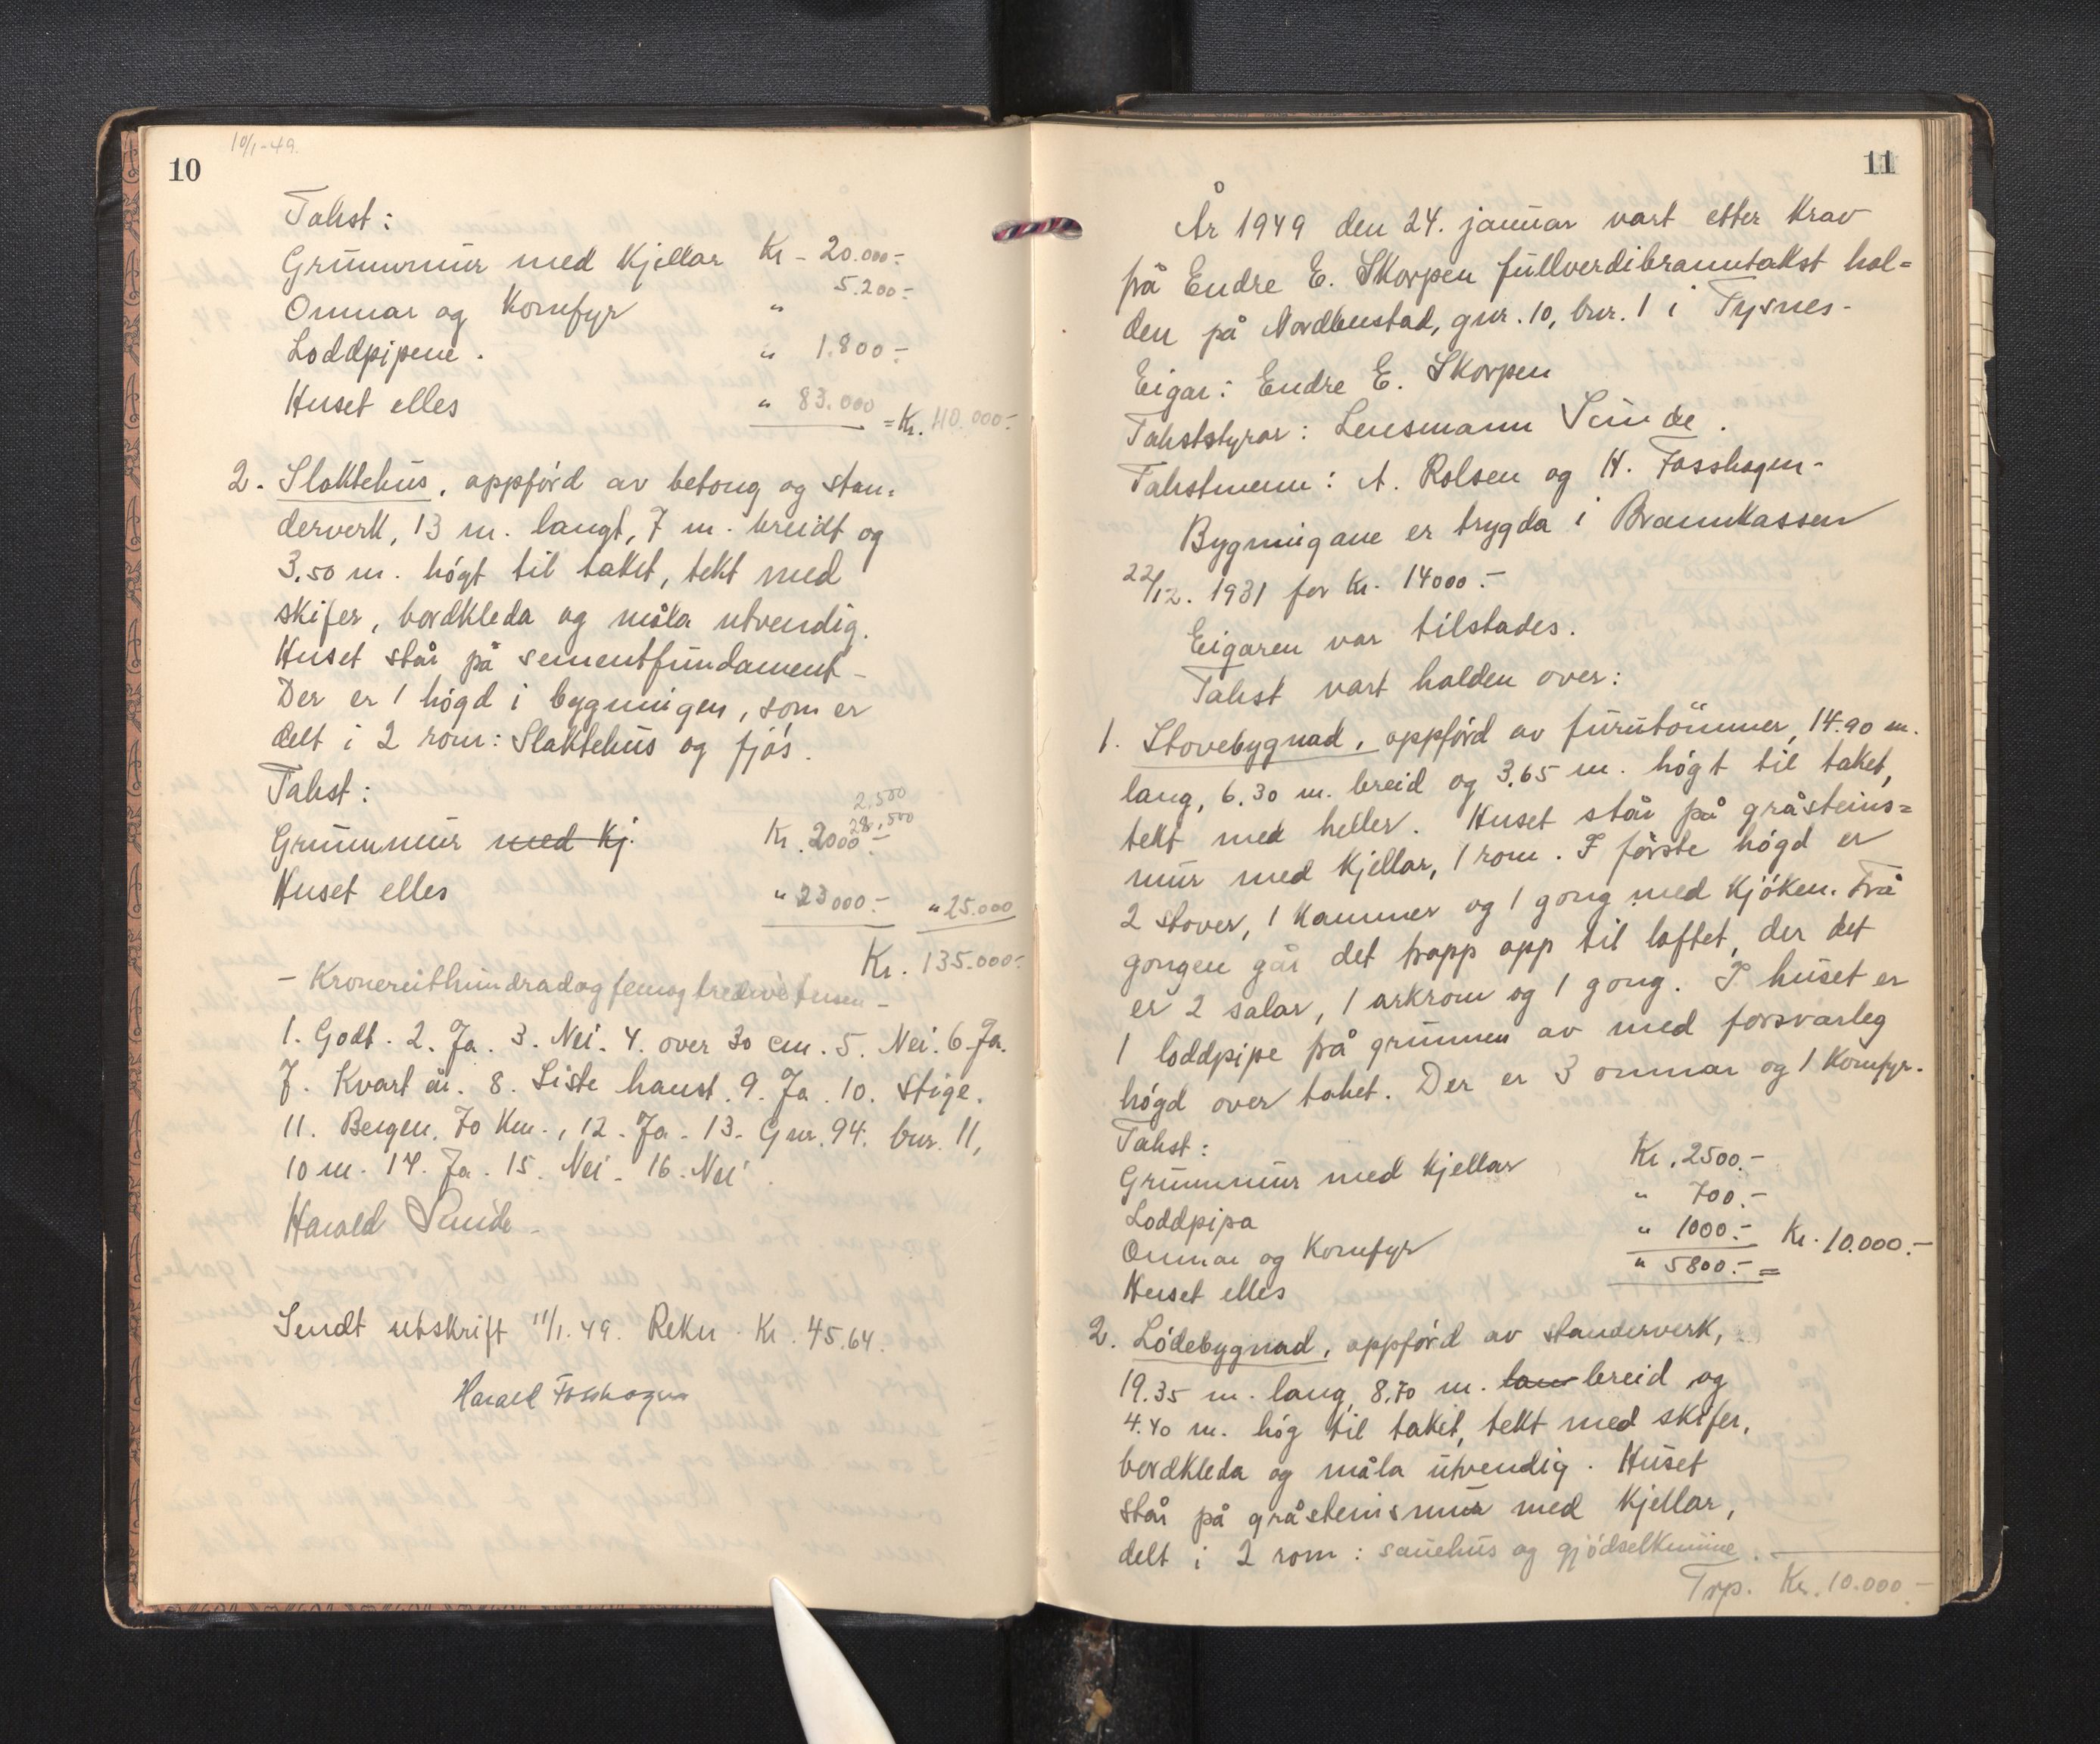 10
10/1-49.
Takst:
Grunnmur med kjellar Kr - 20.000.-
Omnar og komfyr " 5.200.-
Loddpipene. " 1.800.-
Huset elles " 83.000 = Kr. 110.000.-
2. Slaktehus, oppförd av betong og stan=
derverk, 13 m. langt, 7 m. breidt og
3.50 m. högt til taket, tekt med
skifer, bordkleda og måla utvendig.
Huset står på sementfundament-
Der er 1 högd i bygningen, som er
delt i 2 rom: Slaktehus og fjös.
Takst:
2.500
28,500
Grunnmur med kj. Kr. 2000.-
Huset elles " 23000.- " 25.000
Kr. 135.000.-
- Kronereithundradogfemogtredivetusen -
1. Godt. 2. Ja. 3. Nei. 4. over 30 cm. 5. Nei. 6. Ja.
7. Kvart år. 8. Siste haust. 9. Ja. 10. Stige.
11. Bergen, 70 km., 12. Ja. 13. Gnr. 94. bnr. 11,
10 m. 14. Ja. 15. Nei. 16. Nei.
Harald Sunde
Sendt utskrift 11/1. 49. Rekn. Kr. 45.64.
Harald Fosshagen
11
År 1949 den 24. januar vart etter krav
frå Endre E. Skorpen fullverdibranntakst hal=
den på Nordbustad, gnr. 10, bnr. 1 i Tysnes.
Eigar: Endre E. Skorpen
Takststyrar: Lensmann Sunde.
Takstmenn: A. Rolsen og H. Fosshagen.
Bygningane er trygda i Brannkassen
22/12. 1931 for kr. 14000.-
Eigaren var tilstades.
Takst vart halden over:
1. Stovebygnad, oppförd av furutömmer, 14.90 m.
lang, 6.30 m. breid og 3.65 m. högt til taket,
tekt med heller. Huset står på gråsteins=
mur med kjellar, 1 rom. I förste högd er
2 stover, 1 kammer og 1 gong med kjöken. Frå
gongen går det trapp opp til loftet, der det
er 2 salar, 1 arkrom og 1 gong. I huset er
1 loddpipe frå grunnen av med forsvarleg
högd over taket. Der er 3 omnar og 1 komfyr.
Takst:
Grunnmur med kjellar Kr. 2500.-
Loddpipa " 700.-
Omnar og komfyr " 1000.- Kr. 10.000.-
Huset elles " 5800.- =
2. Lödebygnad, oppförd av standerverk,
19.35 m. lang, 8.70 m. lan breid og
4.40 m. hög til taket, tekt med skifer,
bordkleda og måla utvendig. Huset
står på gråsteinsmur med kjellar,
delt i 2 rom: sauehus og gjödselkumme.
Trp. Kr. 10.000.-